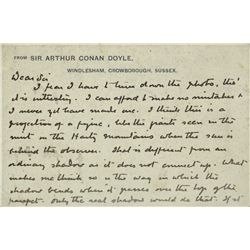 FROM SIR ARTHUR CONAN DOYLE,
WINDLESHAM, CROWBOROUGH, SUSSEX.
Dear Sir
I fear I have to turn down the photo, tho'
it is interesting. I can afford to make no mistakes &
I never yet have made one. I think this is a
projection of a figure, like the giants seen in the
mist in the Hartz mountains when the sun is
behind the observer. That is different from an
ordinary shadow as it does not connect up. What
makes me think so is the way in which the
shadow bends when it passes over the top of the
parapet. Only the real shadow would do that. If it